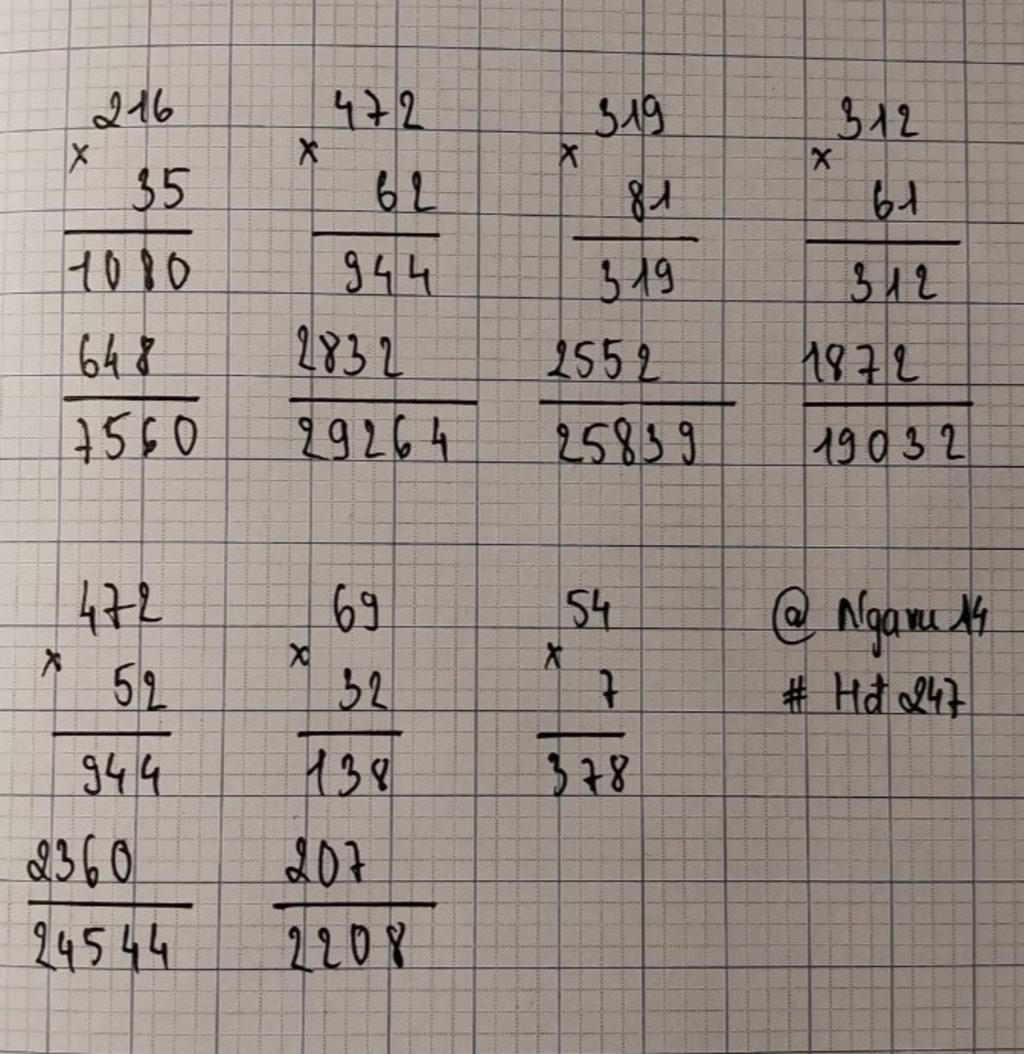 216 472 319 312
x x x x
35 62 81 61
1080 944 319 312
648 2832 2552 1872
7560 29264 25839 19032
472 69 54 @ Ngaru 14
x x x
52 32 7 # Hđ 247
944 138 378
2360 207
24544 2208